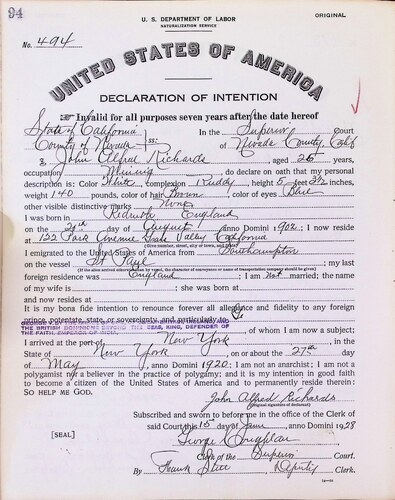 94
U. S. DEPARTMENT OF LABOR
NATURALIZATION SERVICE
ORIGINAL
No. 494
UNITED STATES OF AMERICA
DECLARATION OF INTENTION
Invalid for all purposes seven years after the date hereof
State of California
In the Superior Court
County of Nevada ss: of Nevada County, Calif
I, John Alfred Richards, aged 26 years,
occupation Mining, do declare on oath that my personal
description is: Color White, complexion Ruddy, height 5 feet inches,
weight 140 pounds, color of hair Brown, color of eyes Blue
other visible distinctive marks None
I was born in Redruth, England
on the day of August, anno Domini 1902; I now reside
at 122 Park Avenue Grass Valley California
(Give number, street, city or town, and State.)
I emigrated to the United States of America from Southampton
on the vessel; my last
(If the alien arrived otherwise than by vessel, the character of conveyance or name of transportation company should be given.)
foreign residence was England; I am not married; the name
of my wife is; she was born at
and now resides at
It is my bona fide intention to renounce forever all allegiance and fidelity to any foreign
prince, potentate, state, or sovereignty, and particularly to
THE BRITISH DOMINIONS BEYOND THE SEAS, KING, DEFENDER OF
THE FAITH, EMPEROR OF INDIA, of whom I am now a subject;
I arrived at the port of New York, in the
State of New York, on or about the 27th day
of May, anno Domini 1920; I am not an anarchist; I am not a
polygamist nor a believer in the practice of polygamy; and it is my intention in good faith
to become a citizen of the United States of America and to permanently reside therein:
SO HELP ME GOD.
John Alfred Richards
(Original signature of declarant.)
Subscribed and sworn to before me in the office of the Clerk of
said Court this 15 day of June, anno Domini 1928
[SEAL]
George
Clerk of the Superior Court.
By Deputy Clerk.